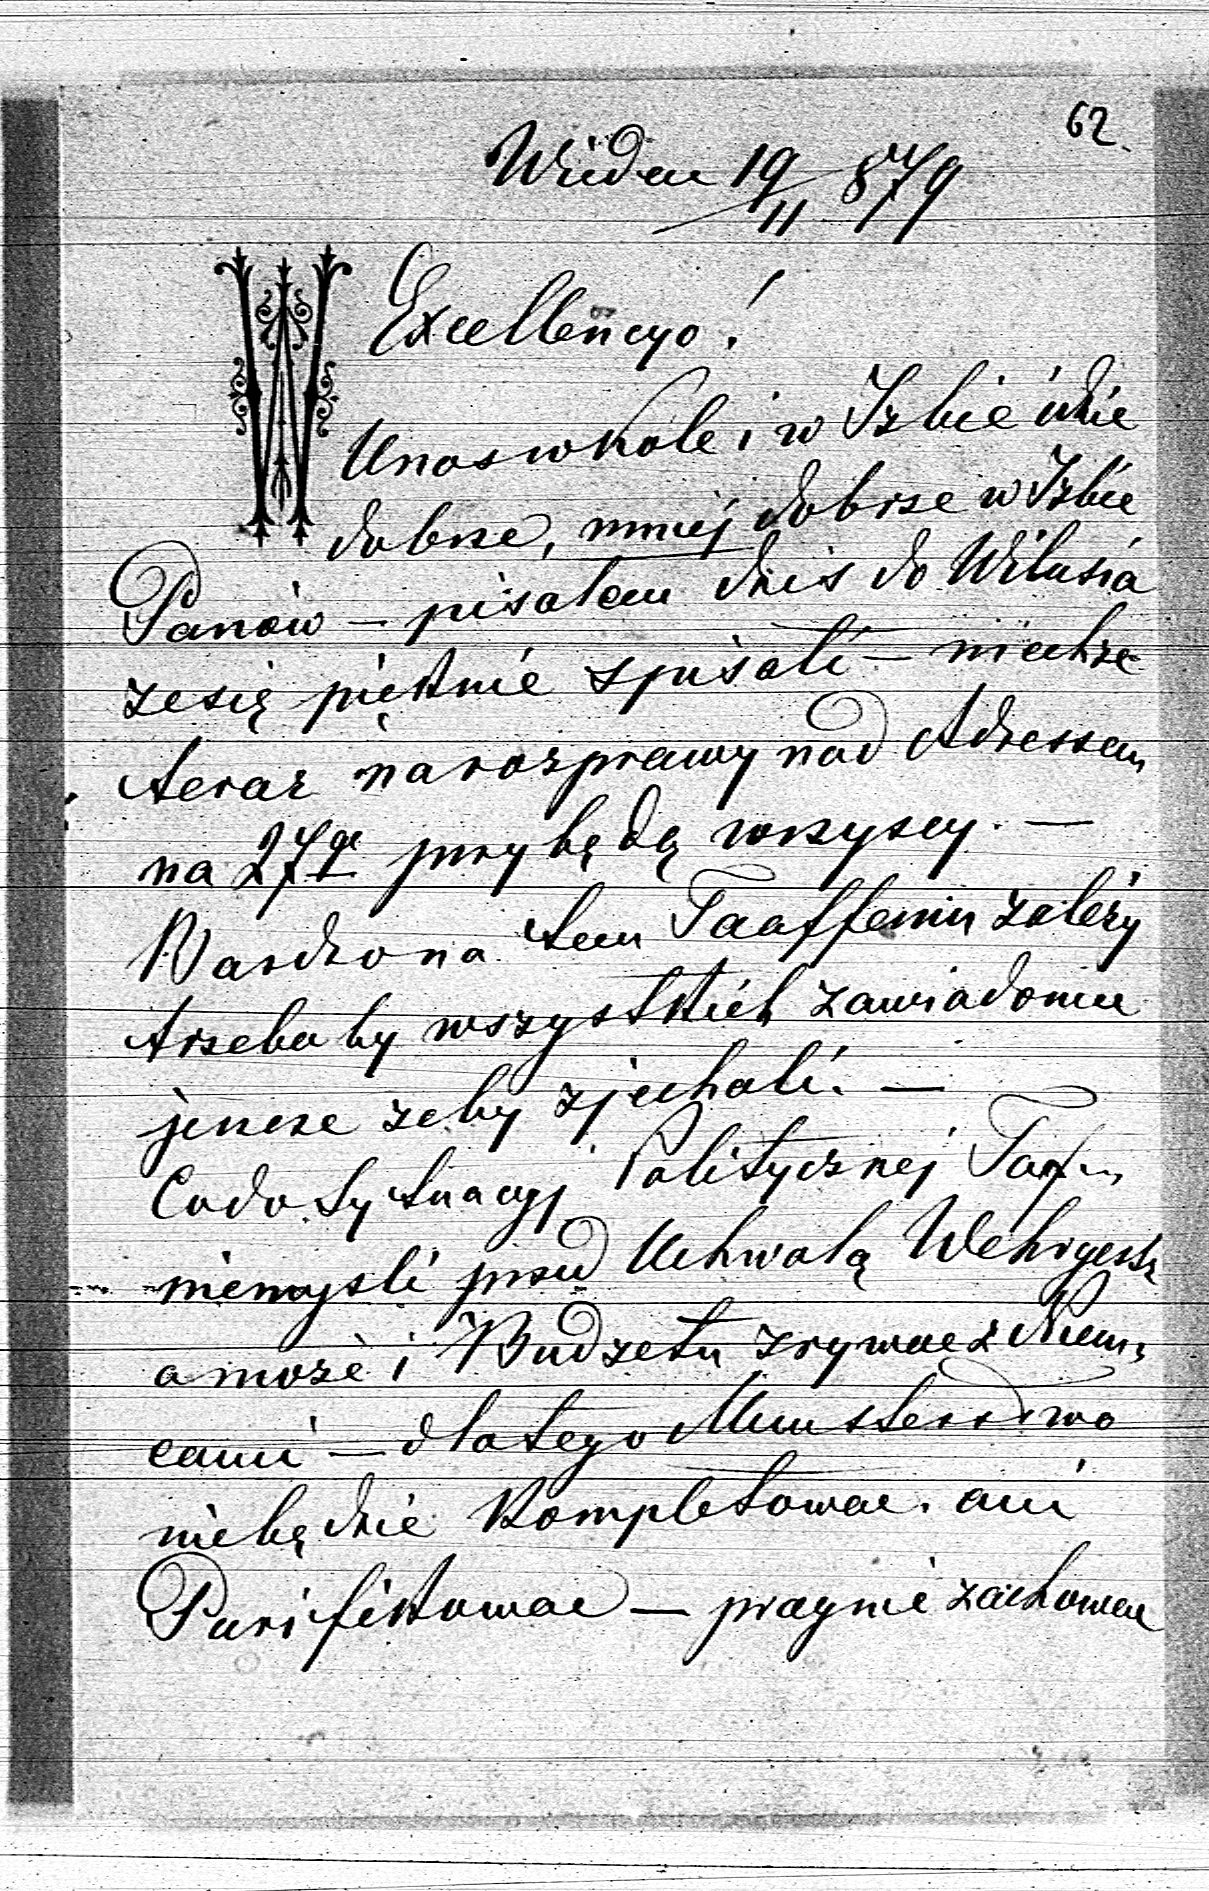 62.
Wiéden 19/11 879
W
Excellencyo!
U nas w Kole i w Izbie idzie
dobrze, mniej dobrze w Izbie
Panów — pisałem dziś do Wilusia
ze się pięknie spisali — niechże
teraz na rozprawy nad Adressem
na 27go przybędą wszyscy. —
Bardzo na tem Taaffemu zależy
trzeba by wszystkich zawiadomić
jeszcze zeby zjechali. —
Co do Sytuacyj Politycznej Taf
niemysli przed Uchwałą Wehrgesetz
a może i Budzetu zrywac z Niem,
cami — dlatego Ministerstwo
niebędzie Kompletowac ani
Purifikowac — pragnie zachowac